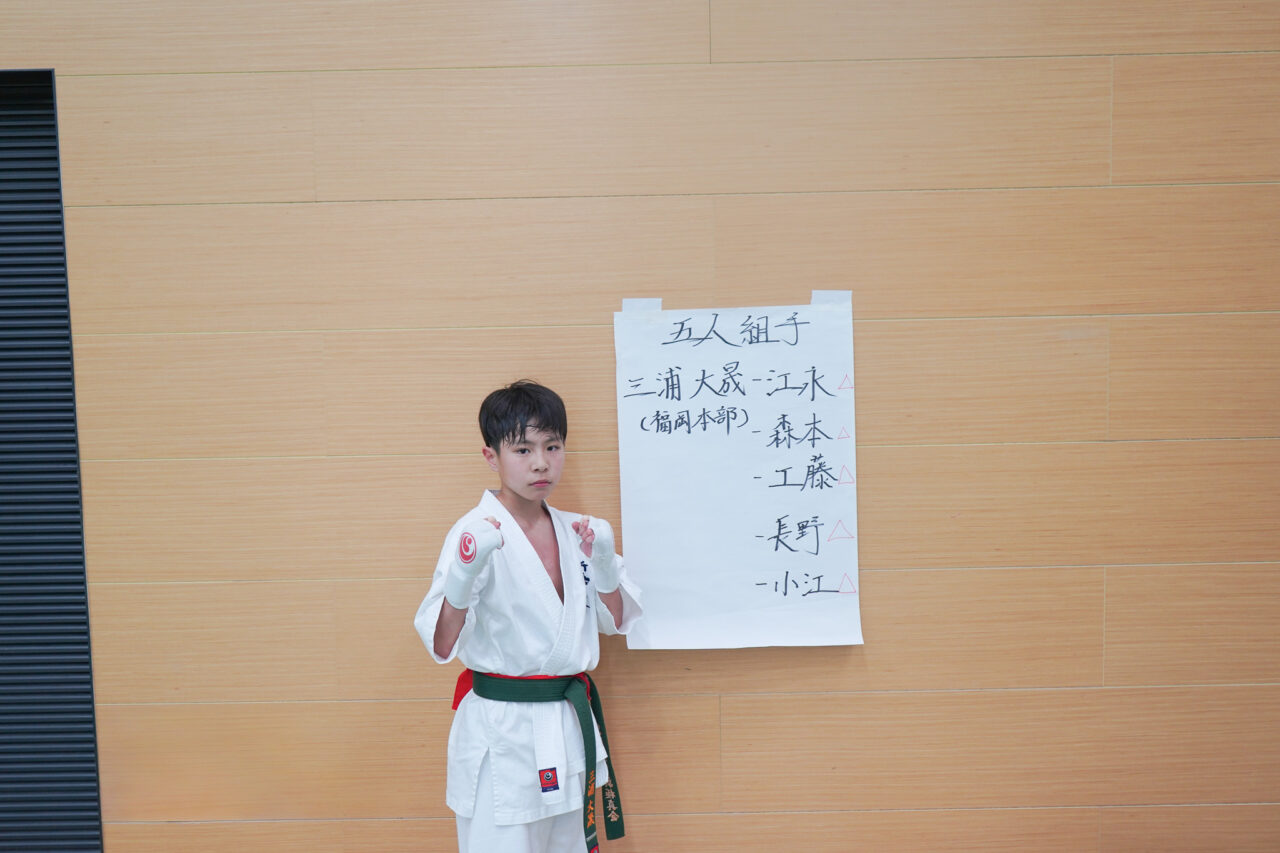 五人組手
三浦大晟-江永△
(福岡本部)
-森本△
-工藤△
-長野△
-小江△
三浦大晟